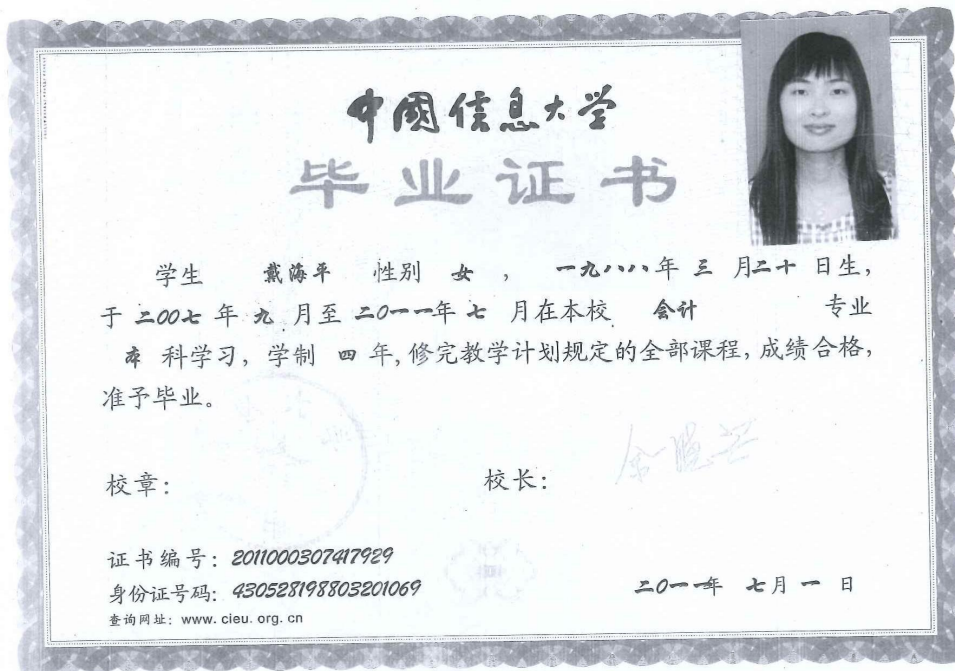 中國信息大学
毕业证书
学生 戴海平 性别 女 ， 一九八八年 三 月二十 日生，
于 二00七 年 九 月至 二0一一年 七 月在本校 会计 专业
本 科学习，学制 四 年，修完教学计划规定的全部课程，成绩合格，
准予毕业。
校章：
校长：
证书编号：2011000307417929
身份证号码：430528198803201069
二0一一年 七月 一 日
查询网址：www. cieu. org. cn